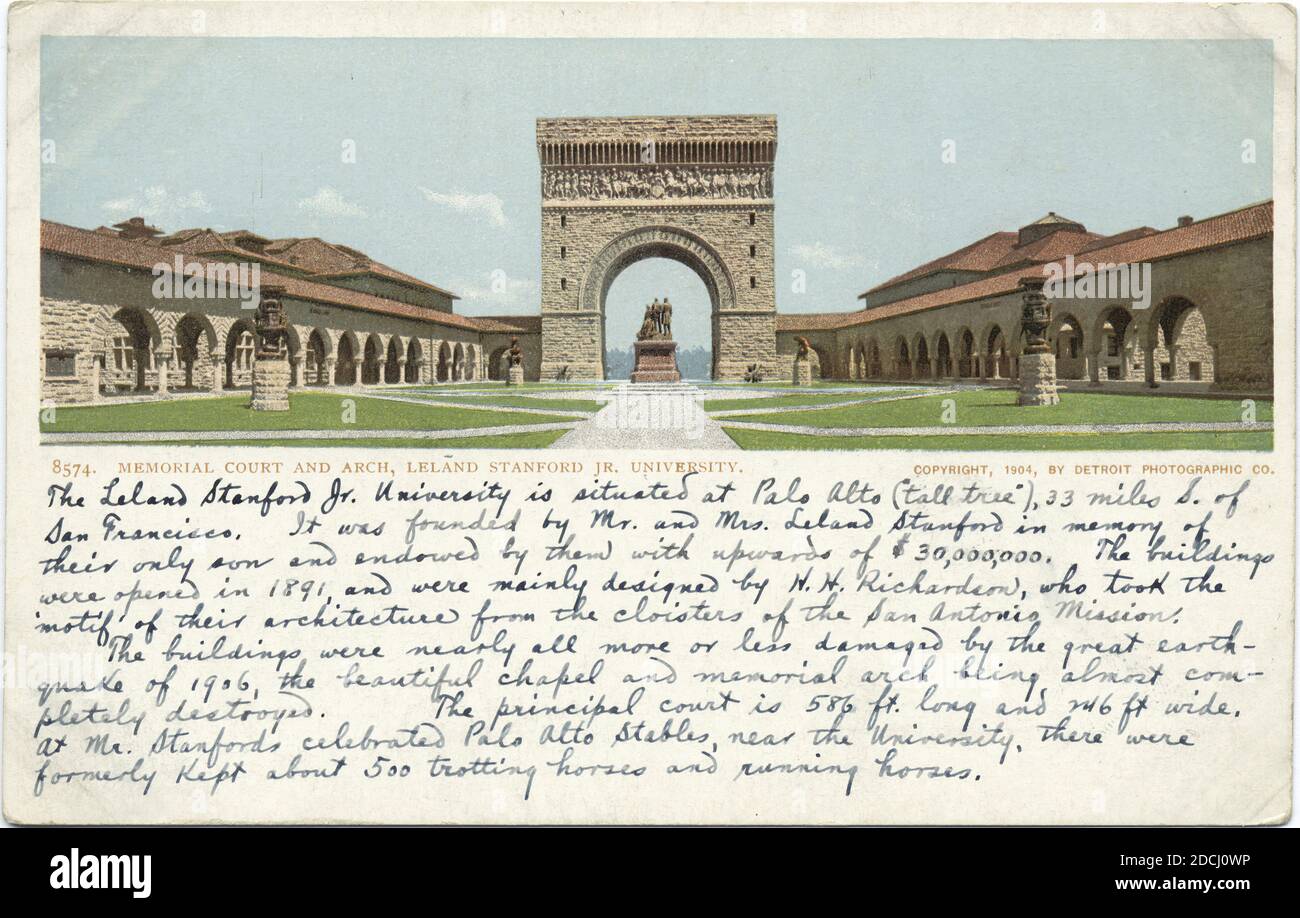 8574. MEMORIAL COURT AND ARCH, LELAND STANFORD JR. UNIVERSITY. COPYRIGHT, 1904, BY DETROIT PHOTOGRAPHIC CO.
The Leland Stanford Jr. University is situated at Palo Alto ("tall tree"), 33 miles S. of
San Francisco. It was founded by Mr. and Mrs. Leland Stanford in memory of
their only son and endowed by them with upwards of $30,000,000. The buildings
were opened in 1891, and were mainly designed by H. H. Richardson, who took the
'motif' of their architecture from the cloisters of the San Antonio Mission.
The buildings were nearly all more or less damaged by the great earth-
quake of 1906, the beautiful chapel and memorial arch being almost com-
pletely destroyed. The principal court is 586 ft. long and 246 ft wide.
At Mr. Stanfords celebrated Palo Alto Stables, near the University, there were
formerly kept about 500 trotting horses and running horses.
alamy
Image ID: 2DCJ0WP
www.alamy.com